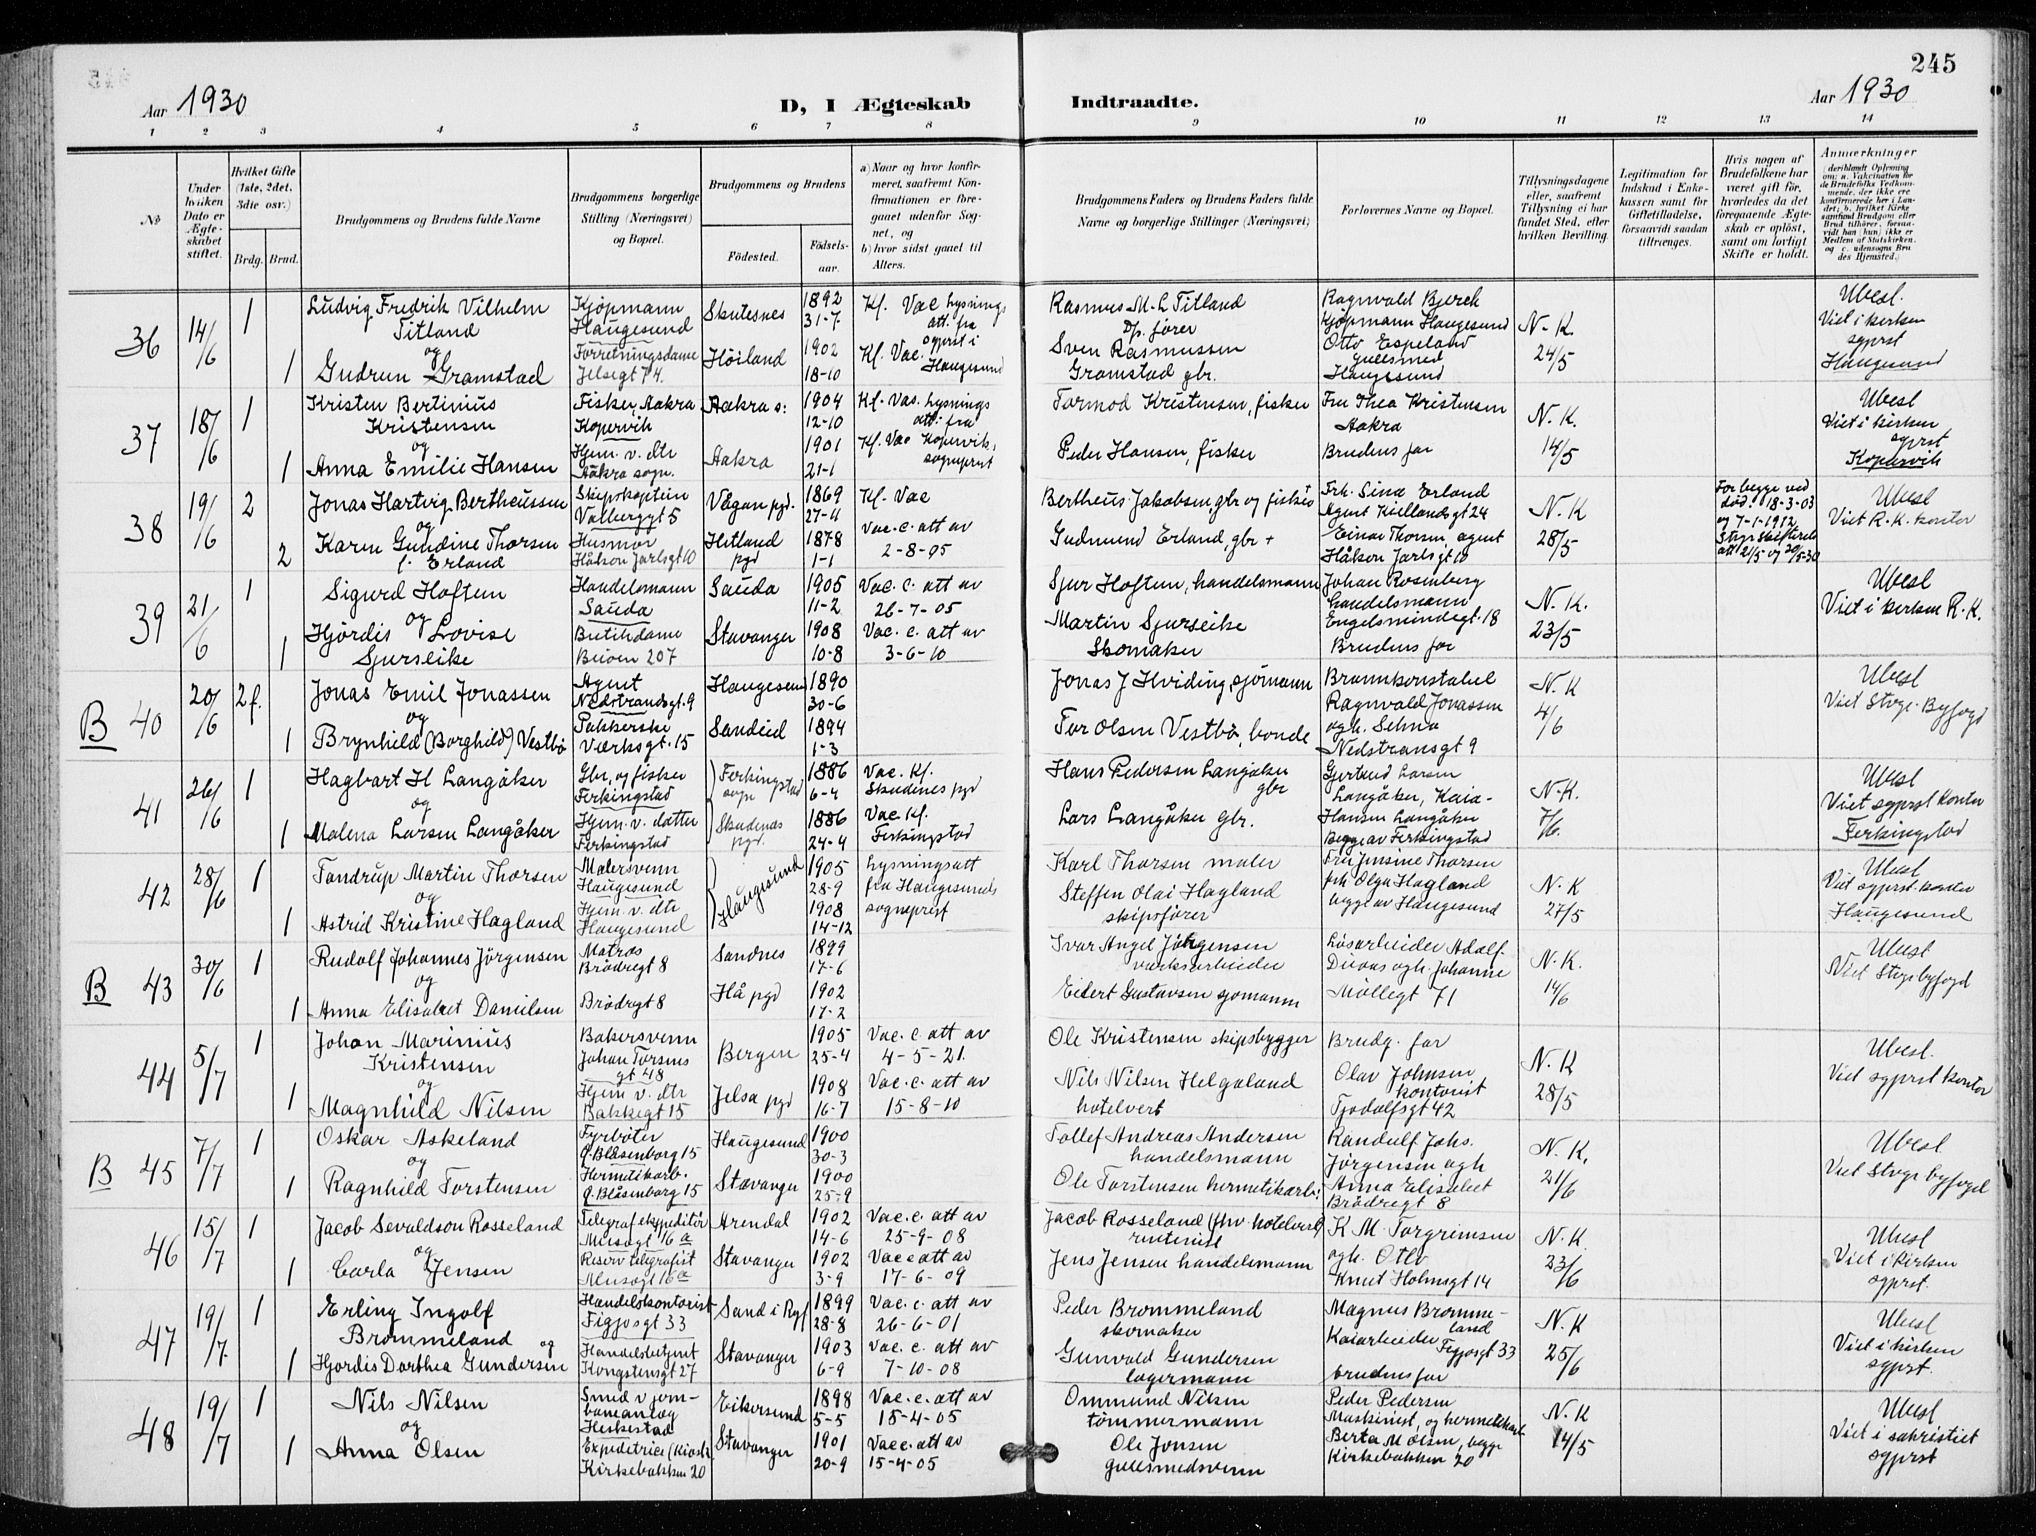 245
Aar 1930
D, I Ægteskab
Indtraadte.
Aar 1930
1 2 3 4 5 6 7 8 9 10 11 12 13 14
No
Under hvilken Dato er Ægteskabet stiftet.
Hvilket Gifte (1ste, 2det, 3die osv.)
Brdg. Brud.
Brudgommens og Brudens fulde Navne
Brudgommens borgerlige Stilling (Næringsvei) og Bopæl.
Brudgommens og Brudens
Fødested.
Fødselsaar.
a) Naar og hvor konfirmeret, saafremt Konfirmationen er foregaaet udenfor Sognet, og
b) hvor sidst gaaet til Alters.
Brudgommens Faders og Brudens Faders fulde Navne og borgerlige Stillinger (Næringsvei)
Forlovernes Navne og Bopæl.
Tillysningsdagene eller, saafremt Tillysning ei har fundet Sted, efter hvilken Bevilling.
Legitimation for Indskud i Enkekassen samt for Giftetilladelse, forsaavidt saadan tiltrænges.
Hvis nogen af Brudefolkene har været gift før, hvorledes da det foregaaende Ægteskab er opløst, samt om lovligt Skifte er holdt.
Anmærkninger
36 14/6 1 Ludvig Fredrik Vilhelm Titland
Kjøpmann Haugesund
Skutesnes 1892 31-7
Kf. Vac lysnings att. fra sgprst i Haugesund
Rasmus M. L Titland Dp. fører
Ragnvald Bjerck Kjøpmann Haugesund
N.K. 24/5
Ubesl. Viet i kirken sgprst Haugesund
og
1 Gudrun Gramstad
Forretningsdame Jelsagt 74.
Höiland 1902 18-10
Kf. Vac.
Sven Rasmussen Gramstad gbr.
Otto Espeland gullsmed Haugesund
37 18/6 1 Kristen Bertinius Kristensen
Fisker, Aakra Kopervik
Aakra s: 1904 12-10
Kf. Vac. lysnings att. fra Kopervik, sogneprst
Tormod Kristensen, fisker
Fru Thea Kristensen Aakra
N.K. 14/5
Ubesl Viet i kirken sgprst Kopervik
og
1 Anna Emilie Hansen
Hjem. v. dtr Aakra sogn.
Aakra 1901 21-1
Kf. Vac
Peder Hansen, fisker
Brudens far
38 19/6 2 Jonas Hartvig Bertheussen
Skipskaptein Valberggt 5
Vågan pgd. 1869 27-4
Kf. Vac
Bertheus Jakobsen, gbr og fisker
Frk. Sina Erland Agent Kiellandsgt 24
N.K 28/5
For begge ved död. 18-3-03 og 7-1-1912
Ubesl Viet R.K. kontor
og
2 Karen Gundine Thorsen f. Erland
Husmor Håkon Jarlsgt 10
Hetland pgd 1878 1-1
Vac. c. att av 2-8-95
Gudmund Erland, gbr +
Einar Thorsen, agent Håkon Jarlsgt 10
39 21/6 1 Sigurd Hoftun
Handelsmann Sauda
Sauda 1905 11-2
Vac. c. att av 26-7-05
Sjur Hoftun, handelsmann
Johan Rosenberg handelsmann Engelsmindegt. 18
N.K. 23/5
Ubesl Viet i kirken R.K.
og
1 Hjördis Lovise Sjurseike
Butikdame
Stavanger 1908 10-8
Vac. c. att av 3-6-10
Martin Sjurseike Skomaker
Brudens far
B 40 20/6 2f. Jonas Emil Jonassen
Agent Nedstrandsgt. 9
Haugesund 1890 30-6
Jonas J Hviding, sjömann
Brannkonstabel Ragnvald Jonassen ogh. Selma Nedstransgt 9
N.K 4/6
Ubesl Viet Stvgr. Byfogd
og
1 Brynhild (Borghild) Vestbö
Pakkerske Verksgt. 15
Sandeid 1894 1-3
Tor Olsen Vestbö, bonde
41 26/6 1 Hagbart H Langåker
Gbr. og fisker Ferkingstad
Ferkingstad sogn 1886 6-4
Vac. Kf. Skudenes pgd
Hans Pedersen Langåker gbr
Gjertrud Larsen Langåker, Kaia Hansen Langåker Begge av Ferkingstad
N.K. 7/6.
Ubesl Viet sgprst kontor Ferkingstad
og
1 Malena Larsen Langåker
Hjem. v. datter Ferkingstad
Skudenes pgd. 1886 24-4
Vac Kf. Ferkingstad
Lars Langåker gbr.
42 28/6 1 Tandrup Martin Thorsen
Malersvenn Haugesund
Haugesund 1905 28-9
lysningsatt fra Haugesunds sogneprest
Karl Thorsen maler
Fru Jensine Thorsen frk. Olga Hagland begge av Haugesund
N.K 27/5
Ubesl Viet sgprst. kontor Haugesund
og
1 Astrid Kristine Hagland
Hjem. v. dtr Haugesund
1908 14-12
Steffen Olai Hagland skipsfører
B 43 30/6 1 Rudolf Johannes Jörgensen
Matros Brödregt 8
Sandnes 1899 17-6
Ivar Angel Jörgensen verksarbeider
Lösarbeider Adolf ogh. Johanne Möllegt 71
N.K. 14/6
Ubesl Viet Stvgr byfogd
og
1 Anna Elisabet Danielsen
Brödregt 8
Hå pgd 1902 17-2
Eilert Gustavsen sjomann
44 5/7 1 Johan Marinius Kristensen
Bakersvenn Johan Torsens gt 48
Bergen 1905 25-4
Vac. c. att av 4-5-21.
Ole Kristensen skipsbygger
Brudg. far
N.K 28/5
Ubesl. Viet sgprst kontor
og
1 Magnhild Nilsen
Hjem v. dtr Bakkegt 15
Jelsa pgd 1908 16-7
Vac. c. att av 15-8-10
Nils Nilsen Helgaland hotelvert
Olav Johnsen kontorist Tjodolfsgt 42
B 45 7/7 1 Oskar Askeland
Fyrböter Blåsenborg 15
Haugesund 1900 30-3
Tollef Andreas Andersen handelsmann
Randulf Johs. Jörgensen ogh Anna Elisabet Brödregt 8
N.K. 21/6
Ubesl Viet Stvgr byfogd
og
1 Ragnhild Torstensen
Hermetikarb. Blåsenborg 15
Stavanger 1900 25-9
Ole Torstensen hermetikarb.
46 15/7 1 Jacob Sevaldson Rosseland
Telegrafekspeditör Musegt 16 a
Arendal 1902 14-6
Vac. c. att av 25-9-08
Jacob Rosseland (fhv. hotelvert) rentenist
K M Torgrimsen ogh. Otto Knut Holmsgt 14
N.K 23/6
Ubesl Viet i kirken sgprst.
og
1 Carla Jensen
Reservtelegrafist Musegt 16 a
Stavanger 1902 3-9
Vac c att av 17-6-09
Jens Jensen handelsmann
47 19/7 1 Erling Ingolf Brommeland
Handelskontorist Figjosgt 33
Sand i Ryf 1899 28-8
Vac. c. att av 26-6-01
Peder Brommeland skomaker
Magnus Brommeland Kaiarbeider Figjosgt 33
N.K 25/6
Ubesl Viet i kirken sgprst.
og
1 Hjordis Dorthea Gundersen
Handelsbetjent Kongstensgt 27
Stavanger 1903 6-9
Vac. c. att av 7-10-08
Gunvald Gundersen lagermann
brudens far
48 19/7 1 Nils Nilsen
Smed v jernbaneanlæg Heskestad
Eikersund 1898 5-5
Vac. c. att av 15-4-05
Ommund Nilsen tömmermann
Peder Pedersen Maskinist, og hermetikarb Berta M Olsen, begge Kirkebakken 20
N.K 14/5
Ubesl Viet i sakristiet sgprst
og
1 Anna Olsen
Expeditrice (Kiosk) Kirkebakken 20
Stavanger 1901 20-9
Vac c. att av 15-4-05
Ole Jonsen gullsmedsvenn